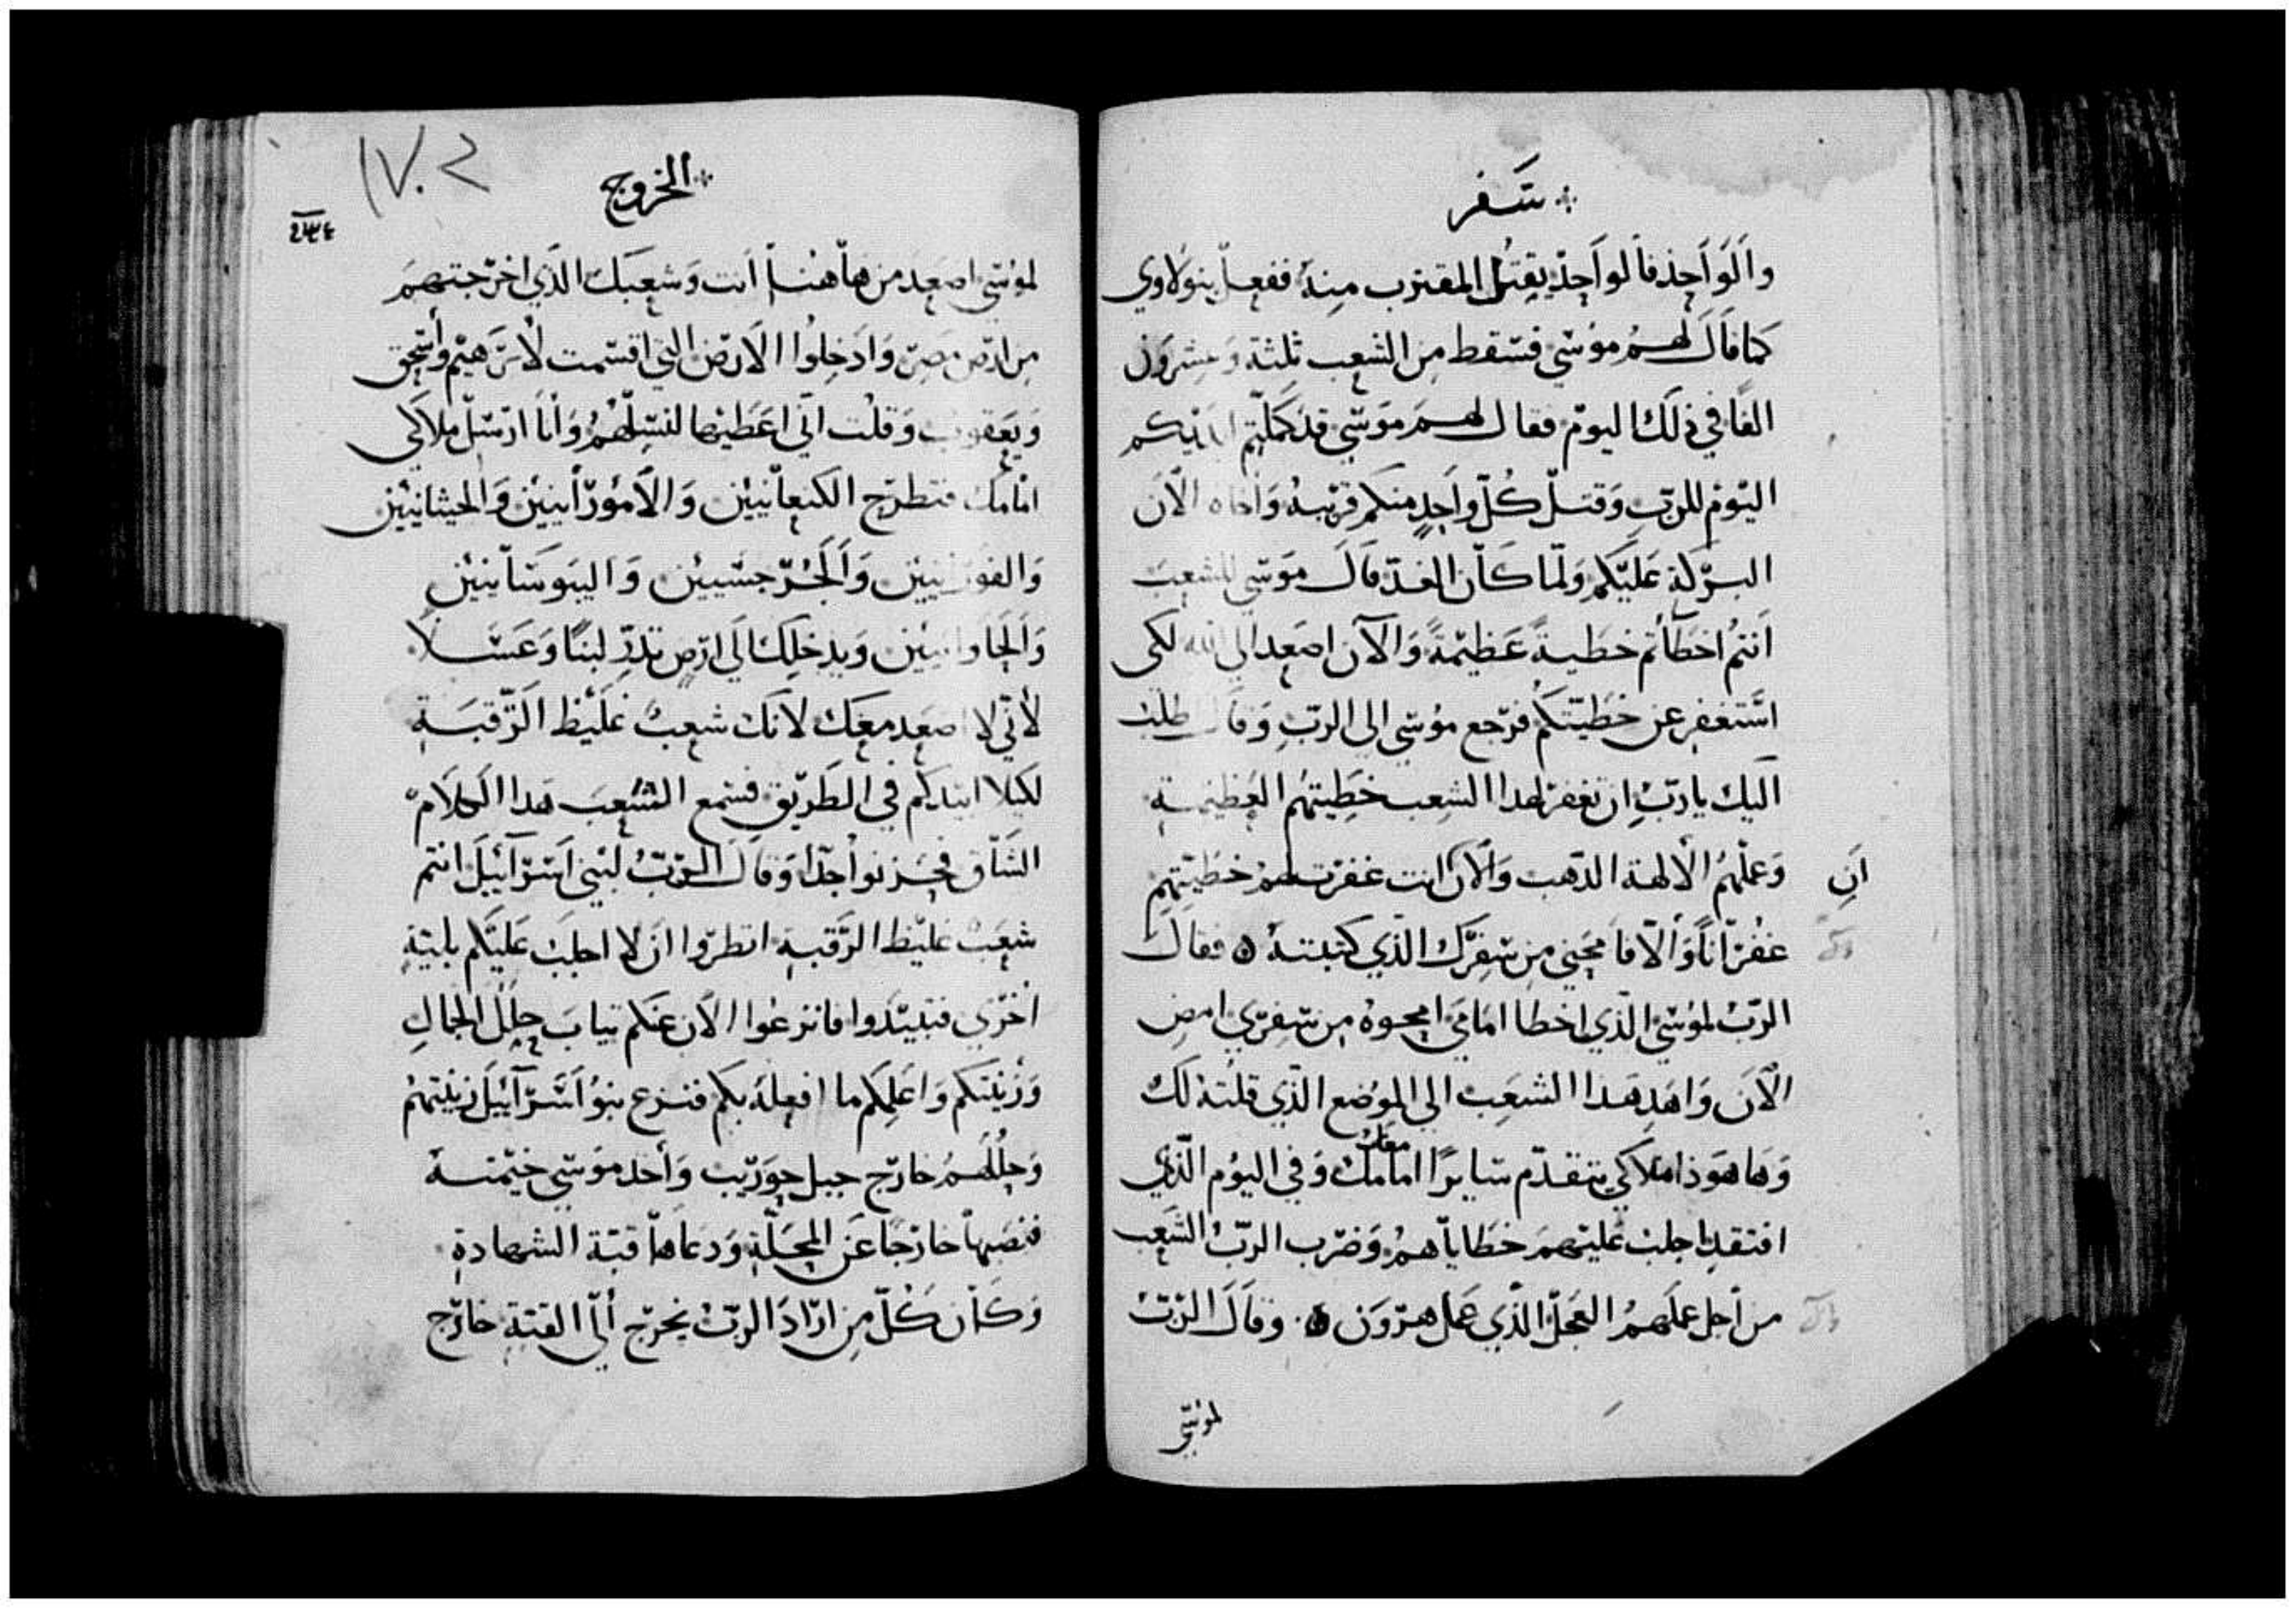 سفر
والواحد فالواحد يقتل المقترب منه ففعل بنو لاوي
كما قال لهم موسي فسقط من الشعب ثلثة وعشرون
الفا في ذلك اليوم فقال لهم موسي قد كملتم ايديكم
اليوم للرب وقتل كل واحد منكم قريبه واخاه الان
البركة عليكم ولما كان الغد قال موسي للشعب
انتم اخطاتم خطية عظيمة والآن اصعد الي الله لكي
استغفر عن خطيتكم فرجع موسي الي الرب وقال طلبت
اليك يا رب ان تغفر لهدا الشعب خطيتهم العظيمة
وعملهم الالهة الدهب والان انت غفرت لهم خطيتهم
ان
غفرانا والا فامحيني من سفرك الذي كتبته ه فقال
الرب لموسي الذي اخطا امامي امحوه من سفري امض
الآن واهد هذا الشعب الي الموضع الذي قلته لك
وها هوذا ملاكي يتقدم سايرا امامك وفي اليوم الذي
افتقد اجلب عليهم خطاياهم وضرب الرب الشعب
من اجل عملهم العجل الذي عمل هرون ه وقال الرب
لموسي
١٧٠٢
الخروج
لموسي اصعد من هاهنا انت وشعبك الذي اخرجتهم
من ارض مصر وادخلوا الارض التي اقسمت لابرهيم واسحق
ويعقوب وقلت اني اعطيها لنسلهم وانا ارسل ملاكي
امامك فتطرح الكنعانيين والامورانيين والحيثانيين
والفورنيين والجرجسيين واليبوسانيين
والحاوانيين ويدخلك الي ارض تدر لبنا وعسلا
لاني لا اصعد معك لانك شعب غليظ الرقبة
لكيلا ابيدكم في الطريق فسمع الشعب هدا الكلام
الشاق فحزنوا جدا وقال الرب لبني اسرآئيل انتم
شعب غليظ الرقبة انظروا ان لا اجلب عليكم بلية
اخري فتبيدوا فانزعوا الان عنكم تياب حلل الجمال
وزينتكم واعلمكم ما افعله بكم فنزع بنو اسرآئيل زينتهم
وحللهم خارج جبل حوريب واخد موسي خيمته
فنصبها خارجا عن المحلة ودعاها قبة الشهادة
وكان كل من اراد الرب يخرج الي القبة خارج